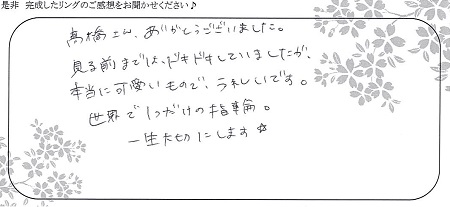 是非 完成したリングのご感想をお聞かせください♪
高橋さん、ありがとうございました。
見る前までは、ドキドキしていましたが、
本当に可愛いもので、うれしいです。
世界で1つだけの指輪。
一生大切にします☆